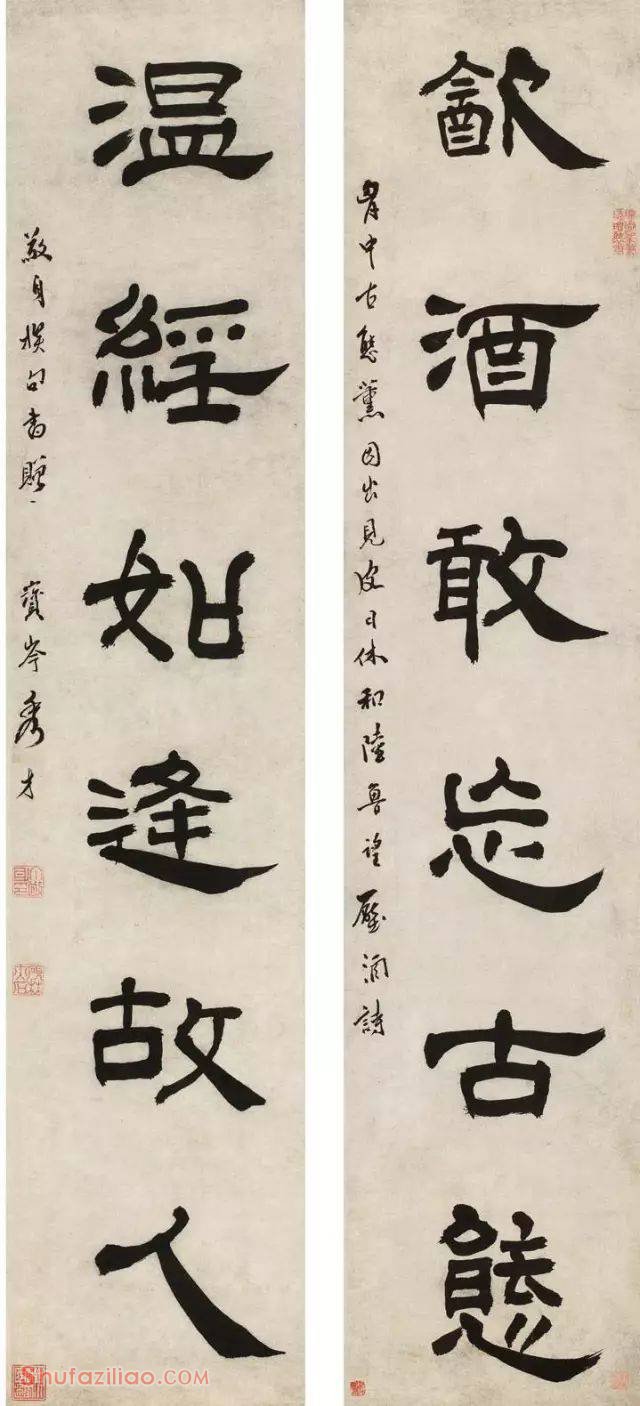 㱃酒敢忘古態
胷中古態薰因出見皮日休和陸魯望壓酒詩
温經如逢故人
敬身撰句書贈寶岑秀才
shufaziliao.com